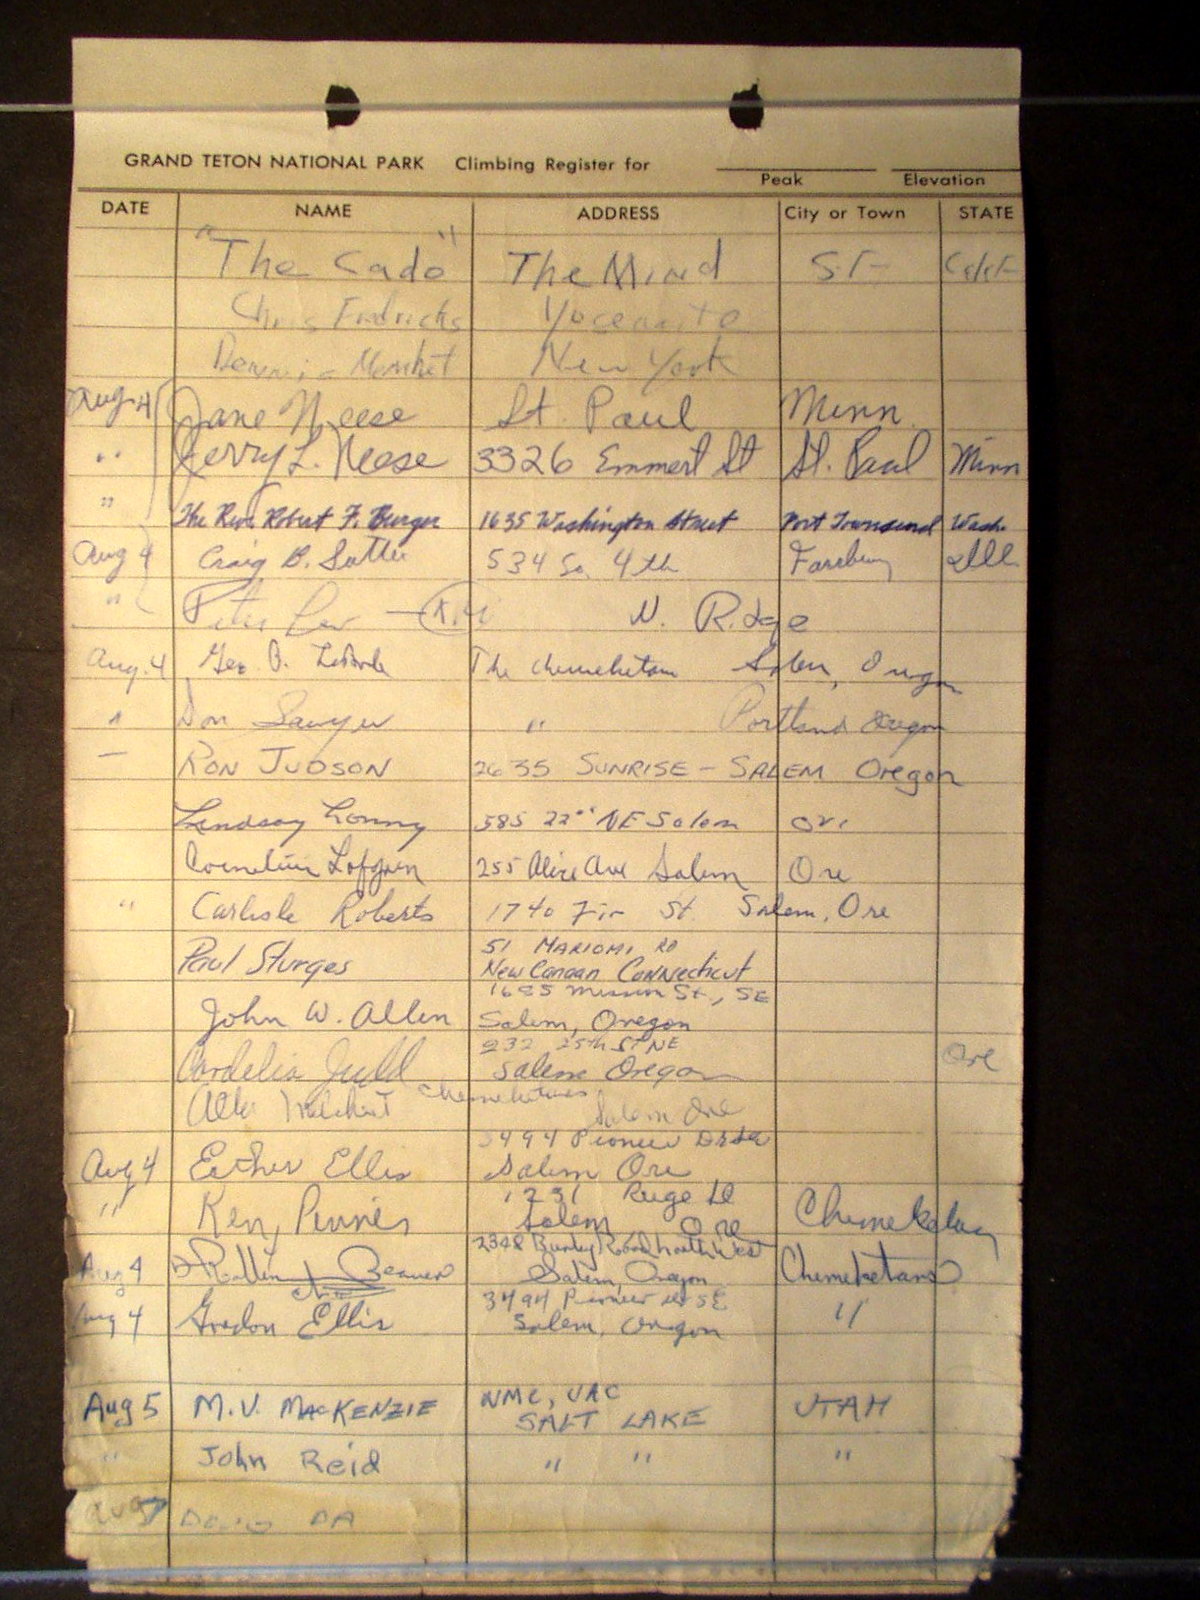 GRAND TETON NATIONAL PARK Climbing Register for
Peak Elevation
DATE NAME ADDRESS City or Town STATE
"The Cado" The Mind S.F.
Chris Fredricks Yosemite
New York
Aug 4 Jane Neese St. Paul Minn.
" Jerry L. Neese 3326 Emmert St St. Paul Minn
" The Rev. Robert F. Burger 1635 Washington Street Port Townsend Wash.
Aug 4 Craig B. 534 So. 4th Ill.
" Peter Lev N. Ridge
Aug. 4 Geo. The Chemeketans Salem, Oregon
" Don Sawyer " Portland Oregon
— RON JUDSON 2635 SUNRISE - SALEM Oregon
Lindsay 585 22" NE Salem Ore
Cornelius Lofgren 255 Alice Ave Salem Ore
" Carlisle Roberts 1740 Fir St. Salem, Ore
51 MARIOMI RD
Paul Sturges New Canaan CONNECTICUT
Mission St., SE
John W. Allen Salem, Oregon
25th ST NE
Cordelia Judd Salem Oregon Ore
Chemeketans Salem Ore
3494 Pioneer Dr SE
Aug 4 Esther Ellis Salem Ore
1231
" Ken Salem Ore Chemeketans
2348 Road NorthWest
Aug 4 Beaver Salem, Oregon Chemeketans
3494 Pioneer Dr SE
Aug 4 Gordon Ellis Salem, Oregon "
WMC, UAC
Aug 5 M.V. MACKENZIE SALT LAKE UTAH
" John Reid " " "
Aug